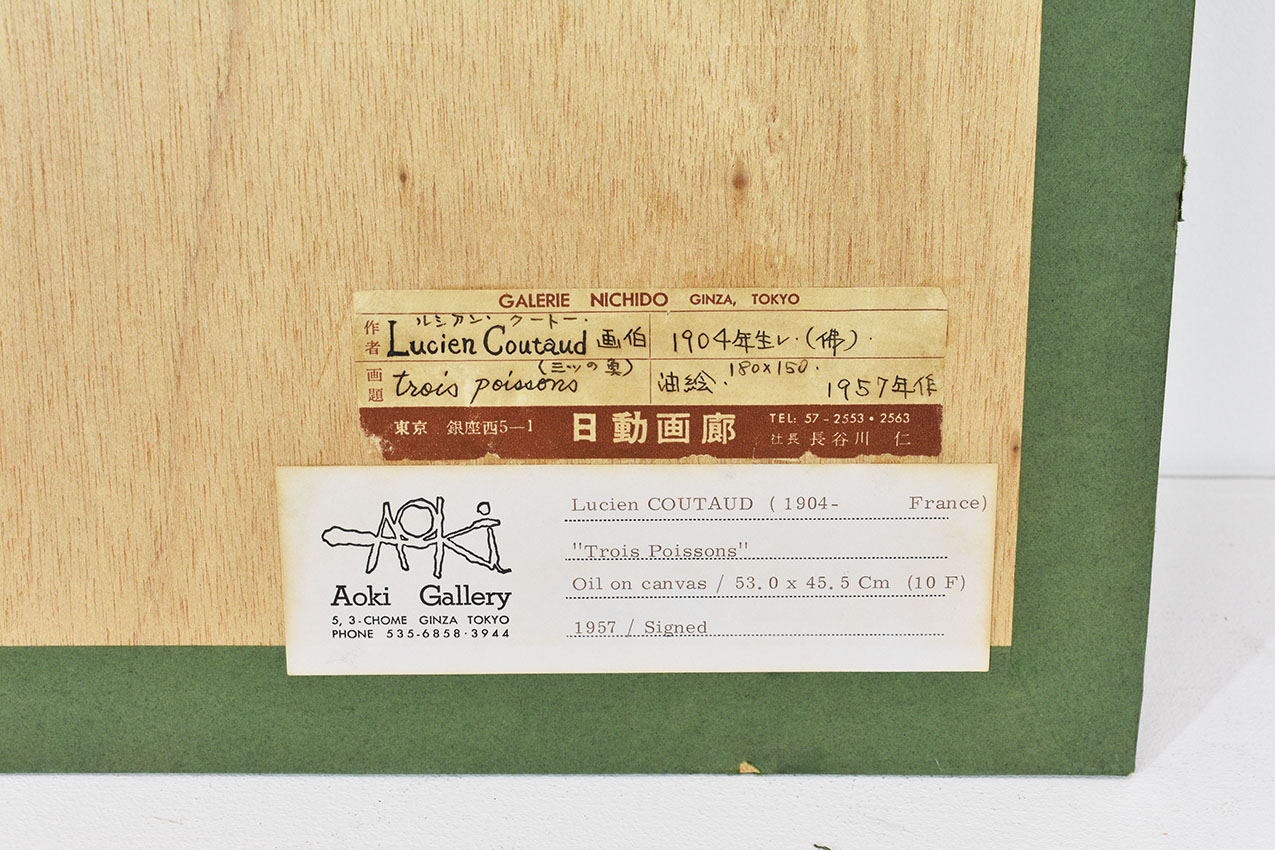 GALERIE NICHIDO GINZA, TOKYO
作者 ルシアン・クートー. Lucien Coutaud 画伯 1904年生レ.(佛).
画題 trois poissons (三ツの魚) 油絵. 180×150. 1957年作
東京 銀座西5—1 日動画廊 TEL: 57-2553・2563
社長 長谷川 仁
AOKi
Aoki Gallery
5, 3-CHOME GINZA TOKYO
PHONE 535-6858・3944
Lucien COUTAUD (1904- France)
"Trois Poissons"
Oil on canvas / 53.0 x 45.5 Cm (10 F)
1957 / Signed